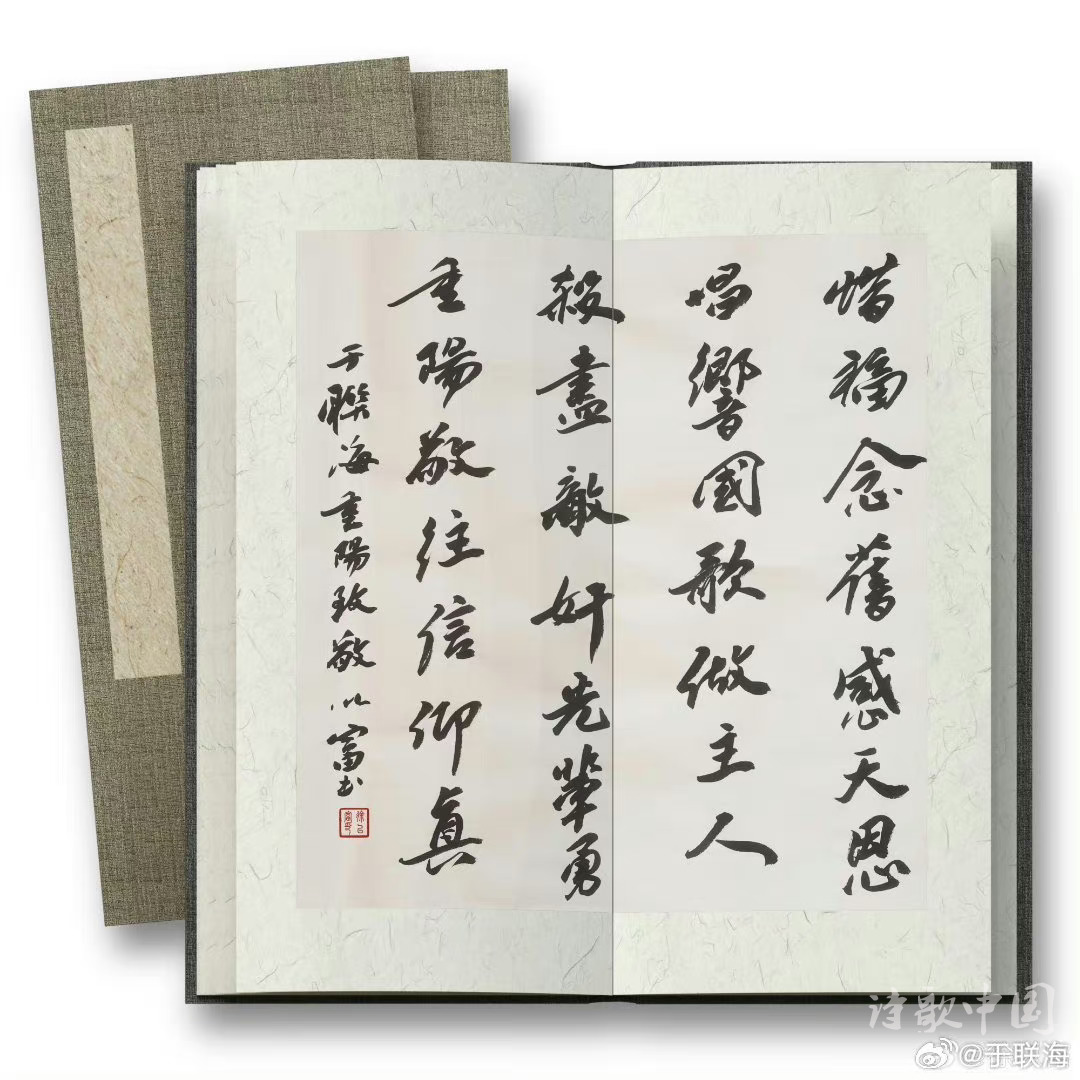 惜福念舊感天恩
唱響國歌做主人
殺盡敵奸先輩勇
重陽敬往信仰真
于聯海重陽致敬以富书
诗歌中国
@于联海